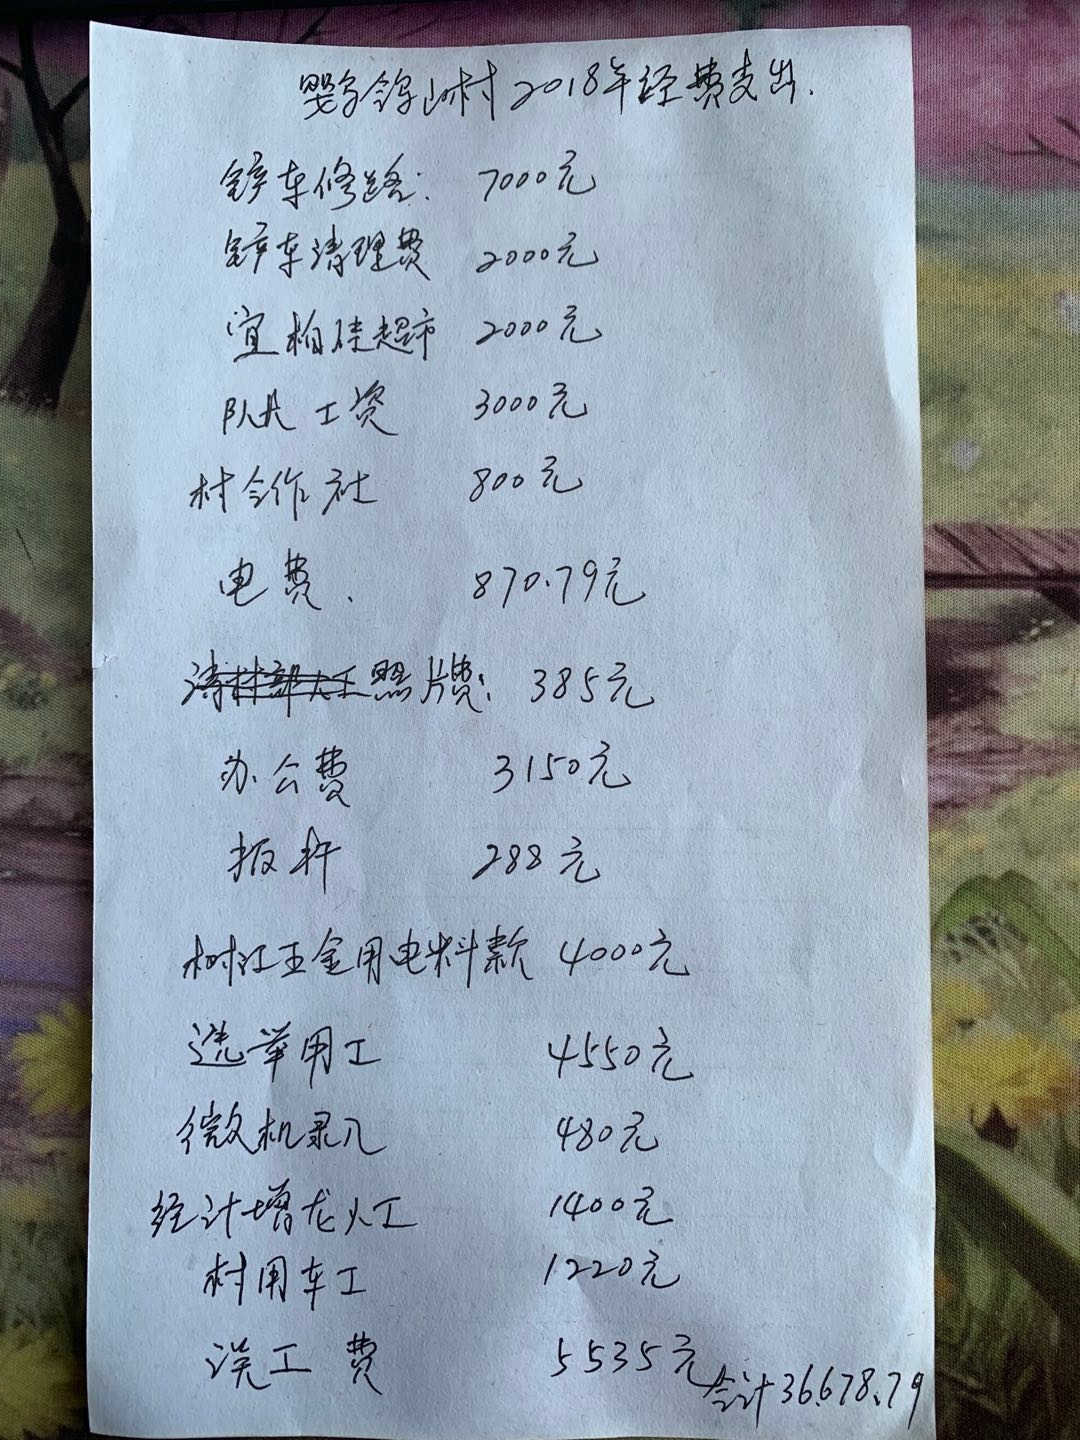 鹦鸽山村2018年经费支出.
铲车修路: 7000元
铲车清理费 2000元
宜柏佳超市 2000元
队员工资 3000元
村合作社 800元
电费. 870.79元
照片费: 385元
办公费 3150元
扳杆 288元
树江五金用电料款 4000元
选举用工 4550元
微机录入 480元
经计增龙人工 1400元
村用车工 1220元
误工费 5535元
合计36678.79